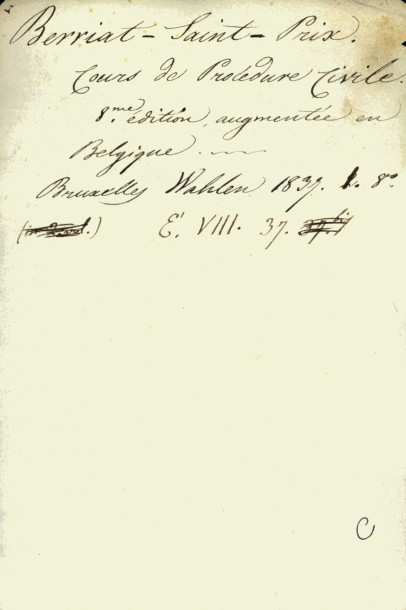 Berriat-Saint-Prix.
Cours de Procédure Civile.
8.me édition, augmentée en
Belgique.
Bruxelles Wahlen 1837. 8.o
E. VIII. 37.
C